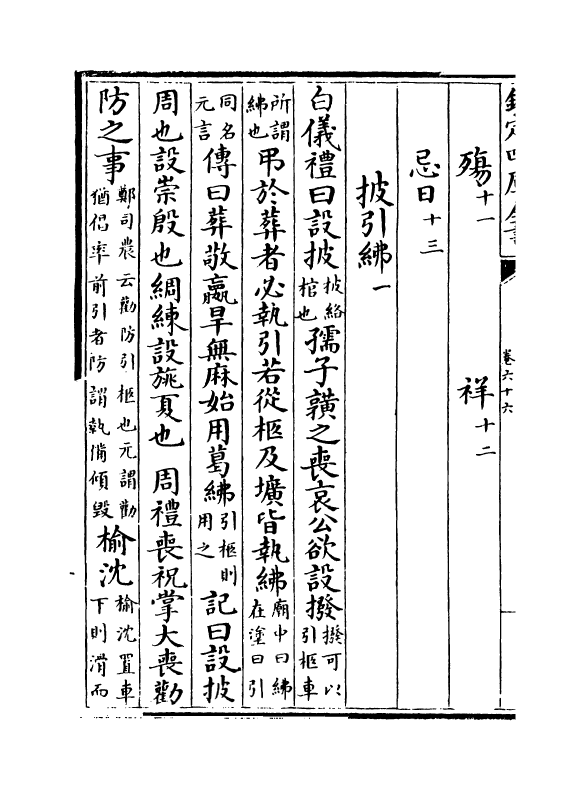 欽定四庫全書
卷六十六
殤十一　祥十二
忌日十三
披引紼一
白儀禮曰設披披絡棺也孺子䵍之喪哀公欲設撥撥可以引柩車
所謂紼也弔於葬者必執引若從柩及壙皆執紼廟中曰紼在塗曰引
同名元言傳曰葬敬嬴旱無麻始用葛紼引柩則用之　記曰設披
周也設崇殷也綢練設旐夏也　周禮喪祝掌大喪勸
防之事鄭司農云勸防引柩也元謂勸猶倡率前引者防謂執備傾毁榆沈榆沈置車下則滑而